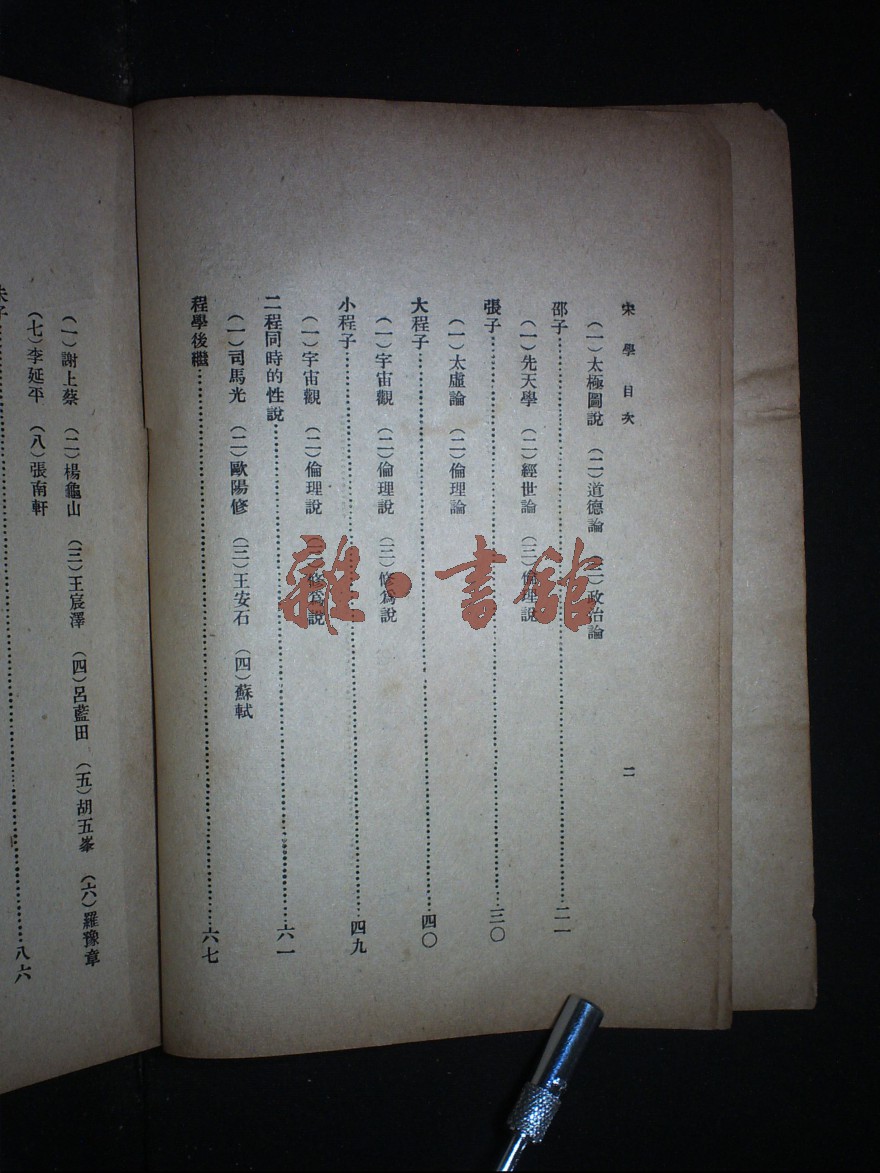 宋學目次
二
(一)太極圖說 (二)道德論 (三)政治論
邵子……二一
(一)先天學 (二)經世論 (三)倫理說
張子……三〇
(一)太虛論 (二)倫理論
大程子……四〇
(一)宇宙觀 (二)倫理說 (三)修爲說
小程子……四九
(一)宇宙觀 (二)倫理說 (三)修爲說
二程同時的性說……六一
(一)司馬光 (二)歐陽修 (三)王安石 (四)蘇軾
程學後繼……六七
(一)謝上蔡 (二)楊龜山 (三)王宸澤 (四)呂藍田 (五)胡五峯 (六)羅豫章
(七)李延平 (八)張南軒
朱子……八六
雜·書館